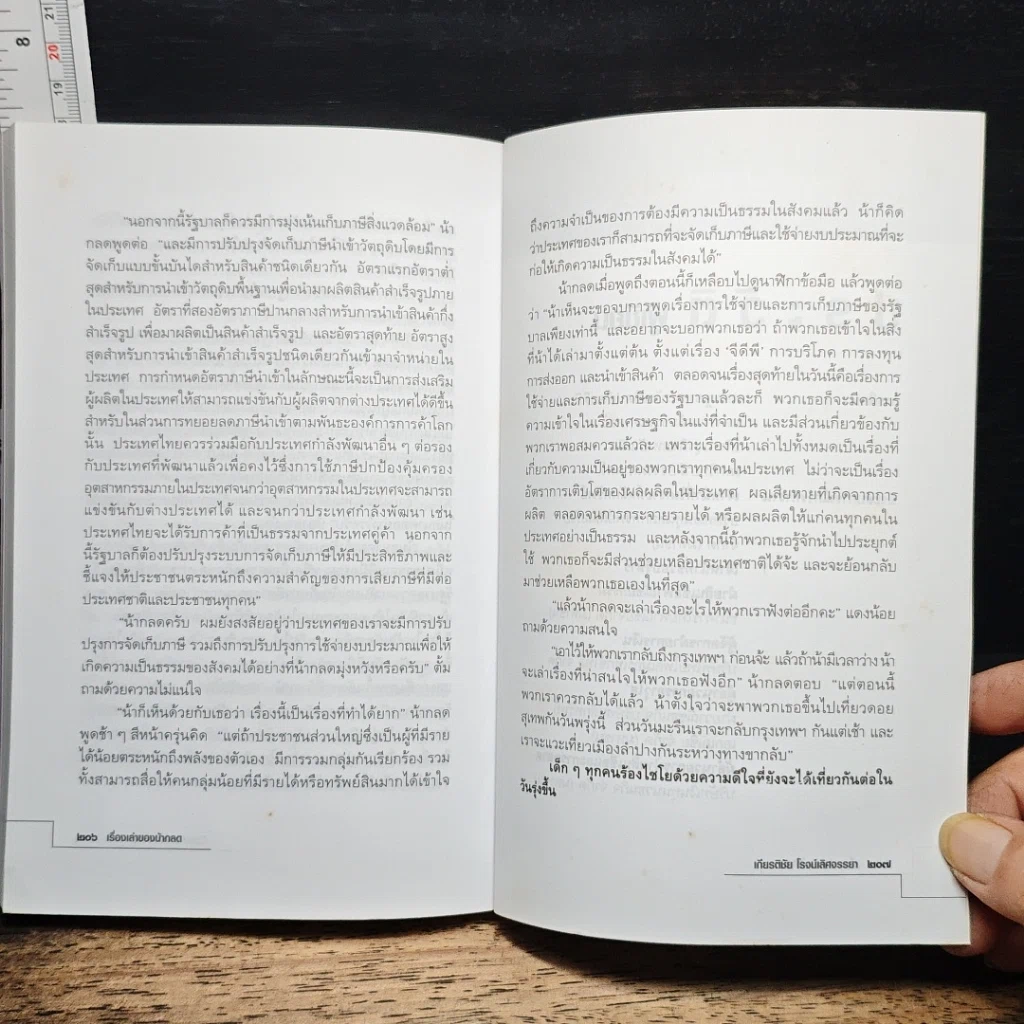 8
21
20
19
"นอกจากนี้รัฐบาลก็ควรมีการมุ่งเน้นเก็บภาษีสิ่งแวดล้อม" น้า
กลดพูดต่อ "และมีการปรับปรุงจัดเก็บภาษีนำเข้าวัตถุดิบโดยมีการ
จัดเก็บแบบขั้นบันไดสำหรับสินค้าชนิดเดียวกัน อัตราแรกอัตราต่ำ
สุดสำหรับการนำเข้าวัตถุดิบพื้นฐานเพื่อนำมาผลิตสินค้าสำเร็จรูปภาย
ในประเทศ อัตราที่สองอัตราภาษีปานกลางสำหรับการนำเข้าสินค้ากึ่ง
สำเร็จรูป เพื่อมาผลิตเป็นสินค้าสำเร็จรูป และอัตราสุดท้าย อัตราสูง
สุดสำหรับการนำเข้าสินค้าสำเร็จรูปชนิดเดียวกันเข้ามาจำหน่ายใน
ประเทศ การกำหนดอัตราภาษีนำเข้าในลักษณะนี้จะเป็นการส่งเสริม
ผู้ผลิตในประเทศให้สามารถแข่งขันกับผู้ผลิตจากต่างประเทศได้ดีขึ้น
สำหรับในส่วนการทยอยลดภาษีนำเข้าตามพันธะองค์การการค้าโลก
นั้น ประเทศไทยควรร่วมมือกับประเทศกำลังพัฒนาอื่น ๆ ต่อรอง
กับประเทศที่พัฒนาแล้วเพื่อคงไว้ซึ่งการใช้ภาษีปกป้องคุ้มครอง
อุตสาหกรรมภายในประเทศจนกว่าอุตสาหกรรมในประเทศจะสามารถ
แข่งขันกับต่างประเทศได้ และจนกว่าประเทศกำลังพัฒนา เช่น
ประเทศไทยจะได้รับการค้าที่เป็นธรรมจากประเทศคู่ค้า นอกจาก
นี้รัฐบาลก็ต้องปรับปรุงระบบการจัดเก็บภาษีให้มีประสิทธิภาพและ
ชี้แจงให้ประชาชนตระหนักถึงความสำคัญของการเสียภาษีที่มีต่อ
ประเทศชาติและประชาชนทุกคน"
"น้ากลดครับ ผมยังสงสัยอยู่ว่าประเทศของเราจะมีการปรับ
ปรุงการจัดเก็บภาษี รวมถึงการปรับปรุงการใช้จ่ายงบประมาณเพื่อให้
เกิดความเป็นธรรมของสังคมได้อย่างที่น้ากลดมุ่งหวังหรือครับ" ตั้ม
ถามด้วยความไม่แน่ใจ
"น้าก็เห็นด้วยกับเธอว่า เรื่องนี้เป็นเรื่องที่ทำได้ยาก" น้ากลด
พูดช้า ๆ สีหน้าครุ่นคิด "แต่ถ้าประชาชนส่วนใหญ่ซึ่งเป็นผู้ที่มีราย
ได้น้อยตระหนักถึงพลังของตัวเอง มีการรวมกลุ่มกันเรียกร้อง รวม
ทั้งสามารถสื่อให้คนกลุ่มน้อยที่มีรายได้หรือทรัพย์สินมากได้เข้าใจ
๒๐๖ เรื่องเล่าของน้ากลด
ถึงความจำเป็นของการต้องมีความเป็นธรรมในสังคมแล้ว น้าก็คิด
ว่าประเทศของเราก็สามารถที่จะจัดเก็บภาษีและใช้จ่ายงบประมาณที่จะ
ก่อให้เกิดความเป็นธรรมในสังคมได้"
น้ากลดเมื่อพูดถึงตอนนี้ก็เหลือบไปดูนาฬิกาข้อมือ แล้วพูดต่อ
ว่า "น้าเห็นจะขอจบการพูดเรื่องการใช้จ่ายและการเก็บภาษีของรัฐ
บาลเพียงเท่านี้ และอยากจะบอกพวกเธอว่า ถ้าพวกเธอเข้าใจในสิ่ง
ที่น้าได้เล่ามาตั้งแต่ต้น ตั้งแต่เรื่อง 'จีดีพี' การบริโภค การลงทุน
การส่งออก และนำเข้าสินค้า ตลอดจนเรื่องสุดท้ายในวันนี้คือเรื่องการ
ใช้จ่ายและการเก็บภาษีของรัฐบาลแล้วละก็ พวกเธอก็จะมีความรู้
ความเข้าใจในเรื่องเศรษฐกิจในแง่ที่จำเป็น และมีส่วนเกี่ยวข้องกับ
พวกเราพอสมควรแล้วละ เพราะเรื่องที่น้าเล่าไปทั้งหมดเป็นเรื่องที่
เกี่ยวกับความเป็นอยู่ของพวกเราทุกคนในประเทศ ไม่ว่าจะเป็นเรื่อง
อัตราการเติบโตของผลผลิตในประเทศ ผลเสียหายที่เกิดจากการ
ผลิต ตลอดจนการกระจายรายได้ หรือผลผลิตให้แก่คนทุกคนใน
ประเทศอย่างเป็นธรรม และหลังจากนี้ถ้าพวกเธอรู้จักนำไปประยุกต์
ใช้ พวกเธอก็จะมีส่วนช่วยเหลือประเทศชาติได้จ้ะ และจะย้อนกลับ
มาช่วยเหลือพวกเธอเองในที่สุด"
"แล้วน้ากลดจะเล่าเรื่องอะไรให้พวกเราฟังต่ออีกคะ" แดงน้อย
ถามด้วยความสนใจ
"เอาไว้ให้พวกเรากลับถึงกรุงเทพฯ ก่อนจ้ะ แล้วถ้าน้ามีเวลาว่าง น้า
จะเล่าเรื่องที่น่าสนใจให้พวกเธอฟังอีก" น้ากลดตอบ "แต่ตอนนี้
พวกเราควรกลับได้แล้ว น้าตั้งใจว่าจะพาพวกเธอขึ้นไปเที่ยวดอย
สุเทพกันวันพรุ่งนี้ ส่วนวันมะรืนเราจะกลับกรุงเทพฯ กันแต่เช้า และ
เราจะแวะเที่ยวเมืองลำปางกันระหว่างทางขากลับ"
เด็ก ๆ ทุกคนร้องไชโยด้วยความดีใจที่ยังจะได้เที่ยวกันต่อใน
วันรุ่งขึ้น
เกียรติชัย โรจน์เลิศจรรยา ๒๐๗